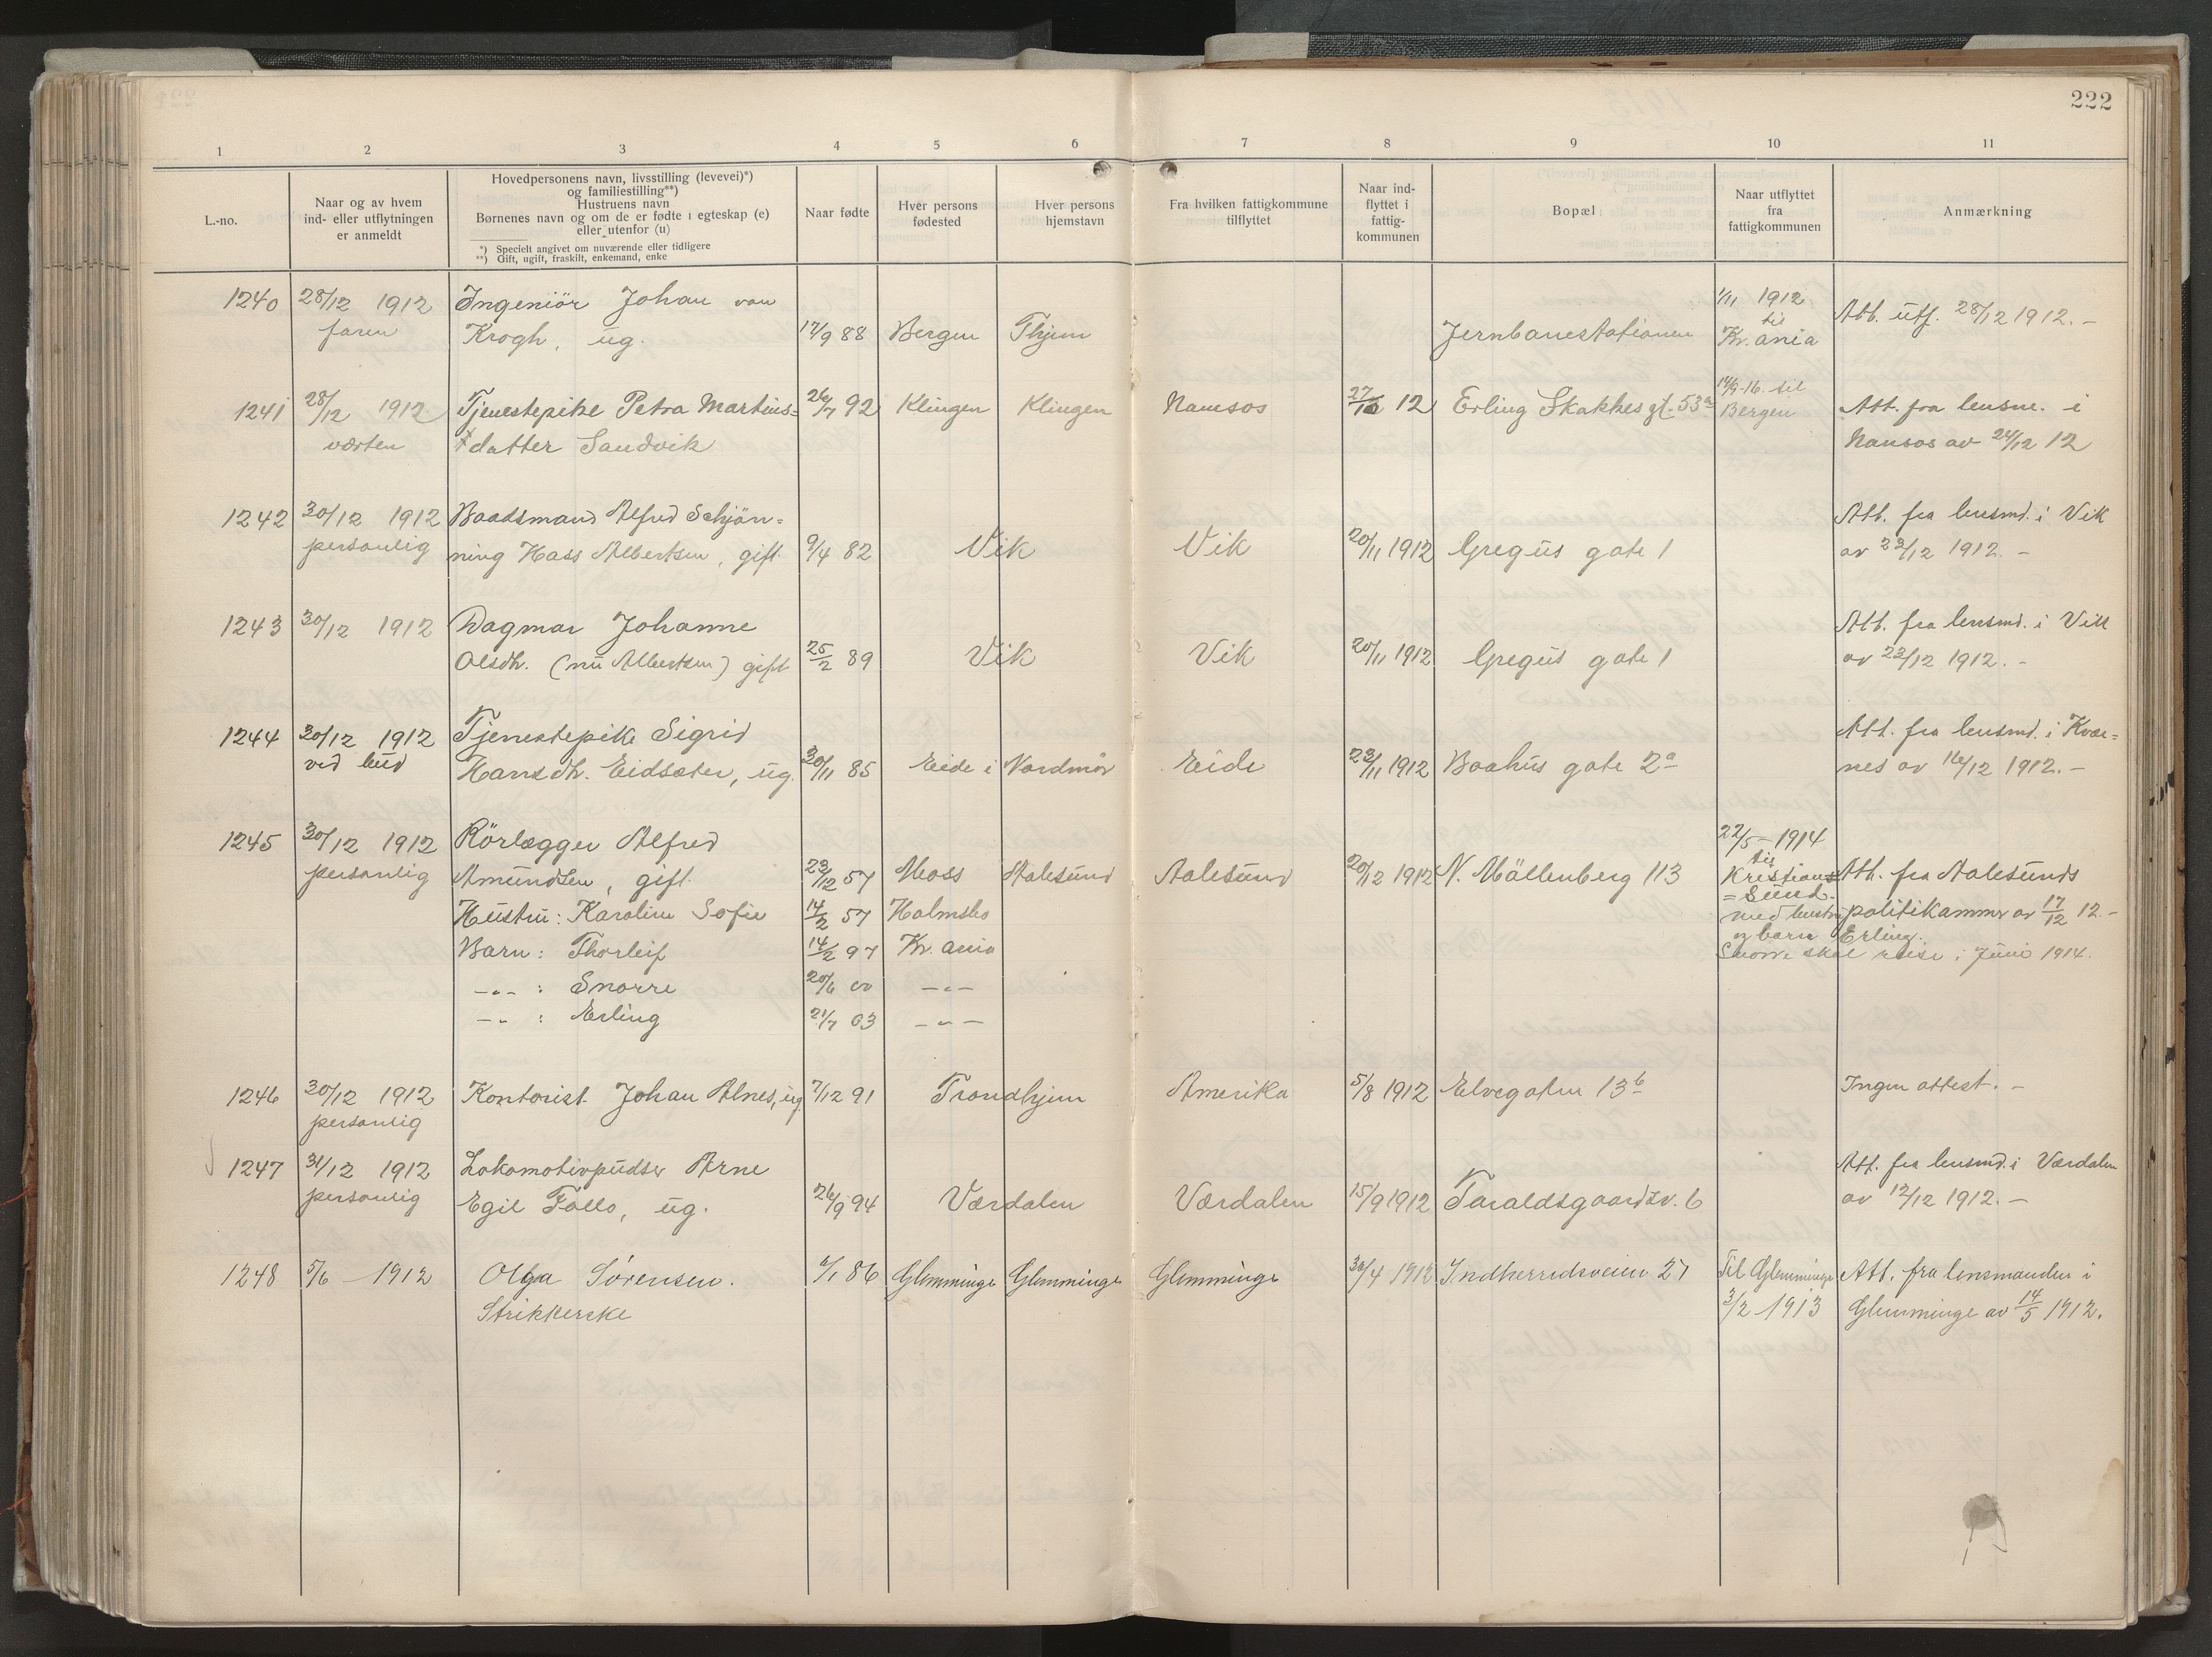 222
1 2 3 4 5 6 7 8 9 10 11
L.-no.
Naar og av hvem
ind- eller utflytningen
er anmeldt
Hovedpersonens navn, livsstilling (levevei)*)
og familiestilling**)
Hustruens navn
Børnenes navn og om de er fødte i egteskap (e)
eller utenfor (u)
*) Specielt angivet om nuværende eller tidligere
**) Gift, ugift, fraskilt, enkemand, enke
Naar fødte
Hver persons
fødested
Hver persons
hjemstavn
Fra hvilken fattigkommune
tilflyttet
Naar ind-
flyttet i
fattig-
kommunen
Bopæl
Naar utflyttet
fra
fattigkommunen
Anmærkning
1240 28/12 1912 Ingeniör Johan von 1/11 1912 Att. utf. 28/12 1912. –
faren Krogh, ug. 17/9 88 Bergen Thjem Jernbanestationen til
Kr.ania
1241 28/12 1912 Tjenestepike Petra Martins= 26/7 92 Klingen Klingen Namsos 27/10 12 Erling Skakkes gt. 53a 14/9-16 til Bergen Att. fra lensm. i
værten datter Sandvik Namsos av 24/12 12
1242 30/12 1912 Baadsmand Alfred Schjön= Att. fra lensmd. i Vik
personlig ning Hass Albertsen, gift 9/4 82 Vik Vik 20/11 1912 Gregus gate 1 av 23/12 1912. –
1243 30/12 1912 Dagmar Johanne Att. fra lensmd. i Vik
Olsdtr. (nu Albertsen) gift 25/2 89 Vik Vik 20/11 1912 Gregus gate 1 av 23/12 1912. –
1244 30/12 1912 Tjenestepike Sigrid Att. fra lensmd. i Kvær=
ved bud Hansdtr. Eidsæter, ug. 30/11 85 Eide i Nordmör Eide 23/11 1912 Baahus gate 2a nes av 16/12 1912. –
1245 30/12 1912 Rörlægger Alfred 22/5 – 1914
personlig Amundsen, gift. 23/12 57 Moss Aalesund Aalesund 20/12 1912 N. Möllenberg 113 til Kristians= Att. fra Aalesunds
Hustru: Karoline Sofie 14/2 57 Holmsbo =sund. med hustru politikammer av 17/12 12. –
Barn: Thorleif 14/2 97 Kr.ania og barn Erling.
Snorre skal reise i Juni 1914.
–"– : Snorre 20/6 00 –"–
–"– : Erling 21/7 03 –"–
1246 30/12 1912 Kontorist Johan Alnes, ug. 7/12 91 Trondhjem Amerika 5/8 1912 Elvegaten 13b Ingen attest. –
personlig
1247 31/12 1912 Lokomotivpudser Arne Att. fra lensmd. i Værdalen
personlig Egil Follo, ug. 26/9 94 Værdalen Værdalen 15/9 1912 Taraldsgaardsv. 6 av 12/12 1912. –
1248 5/6 – 1912 Olga Sörensen. /1 86 Glemminge Glemminge Glemminge 30/4 1912 Indherredsveien 27 Til Glemminge Att. fra lensmanden i
Strikkerske 3/2 – 1913 Glemminge av 14/5 1912.